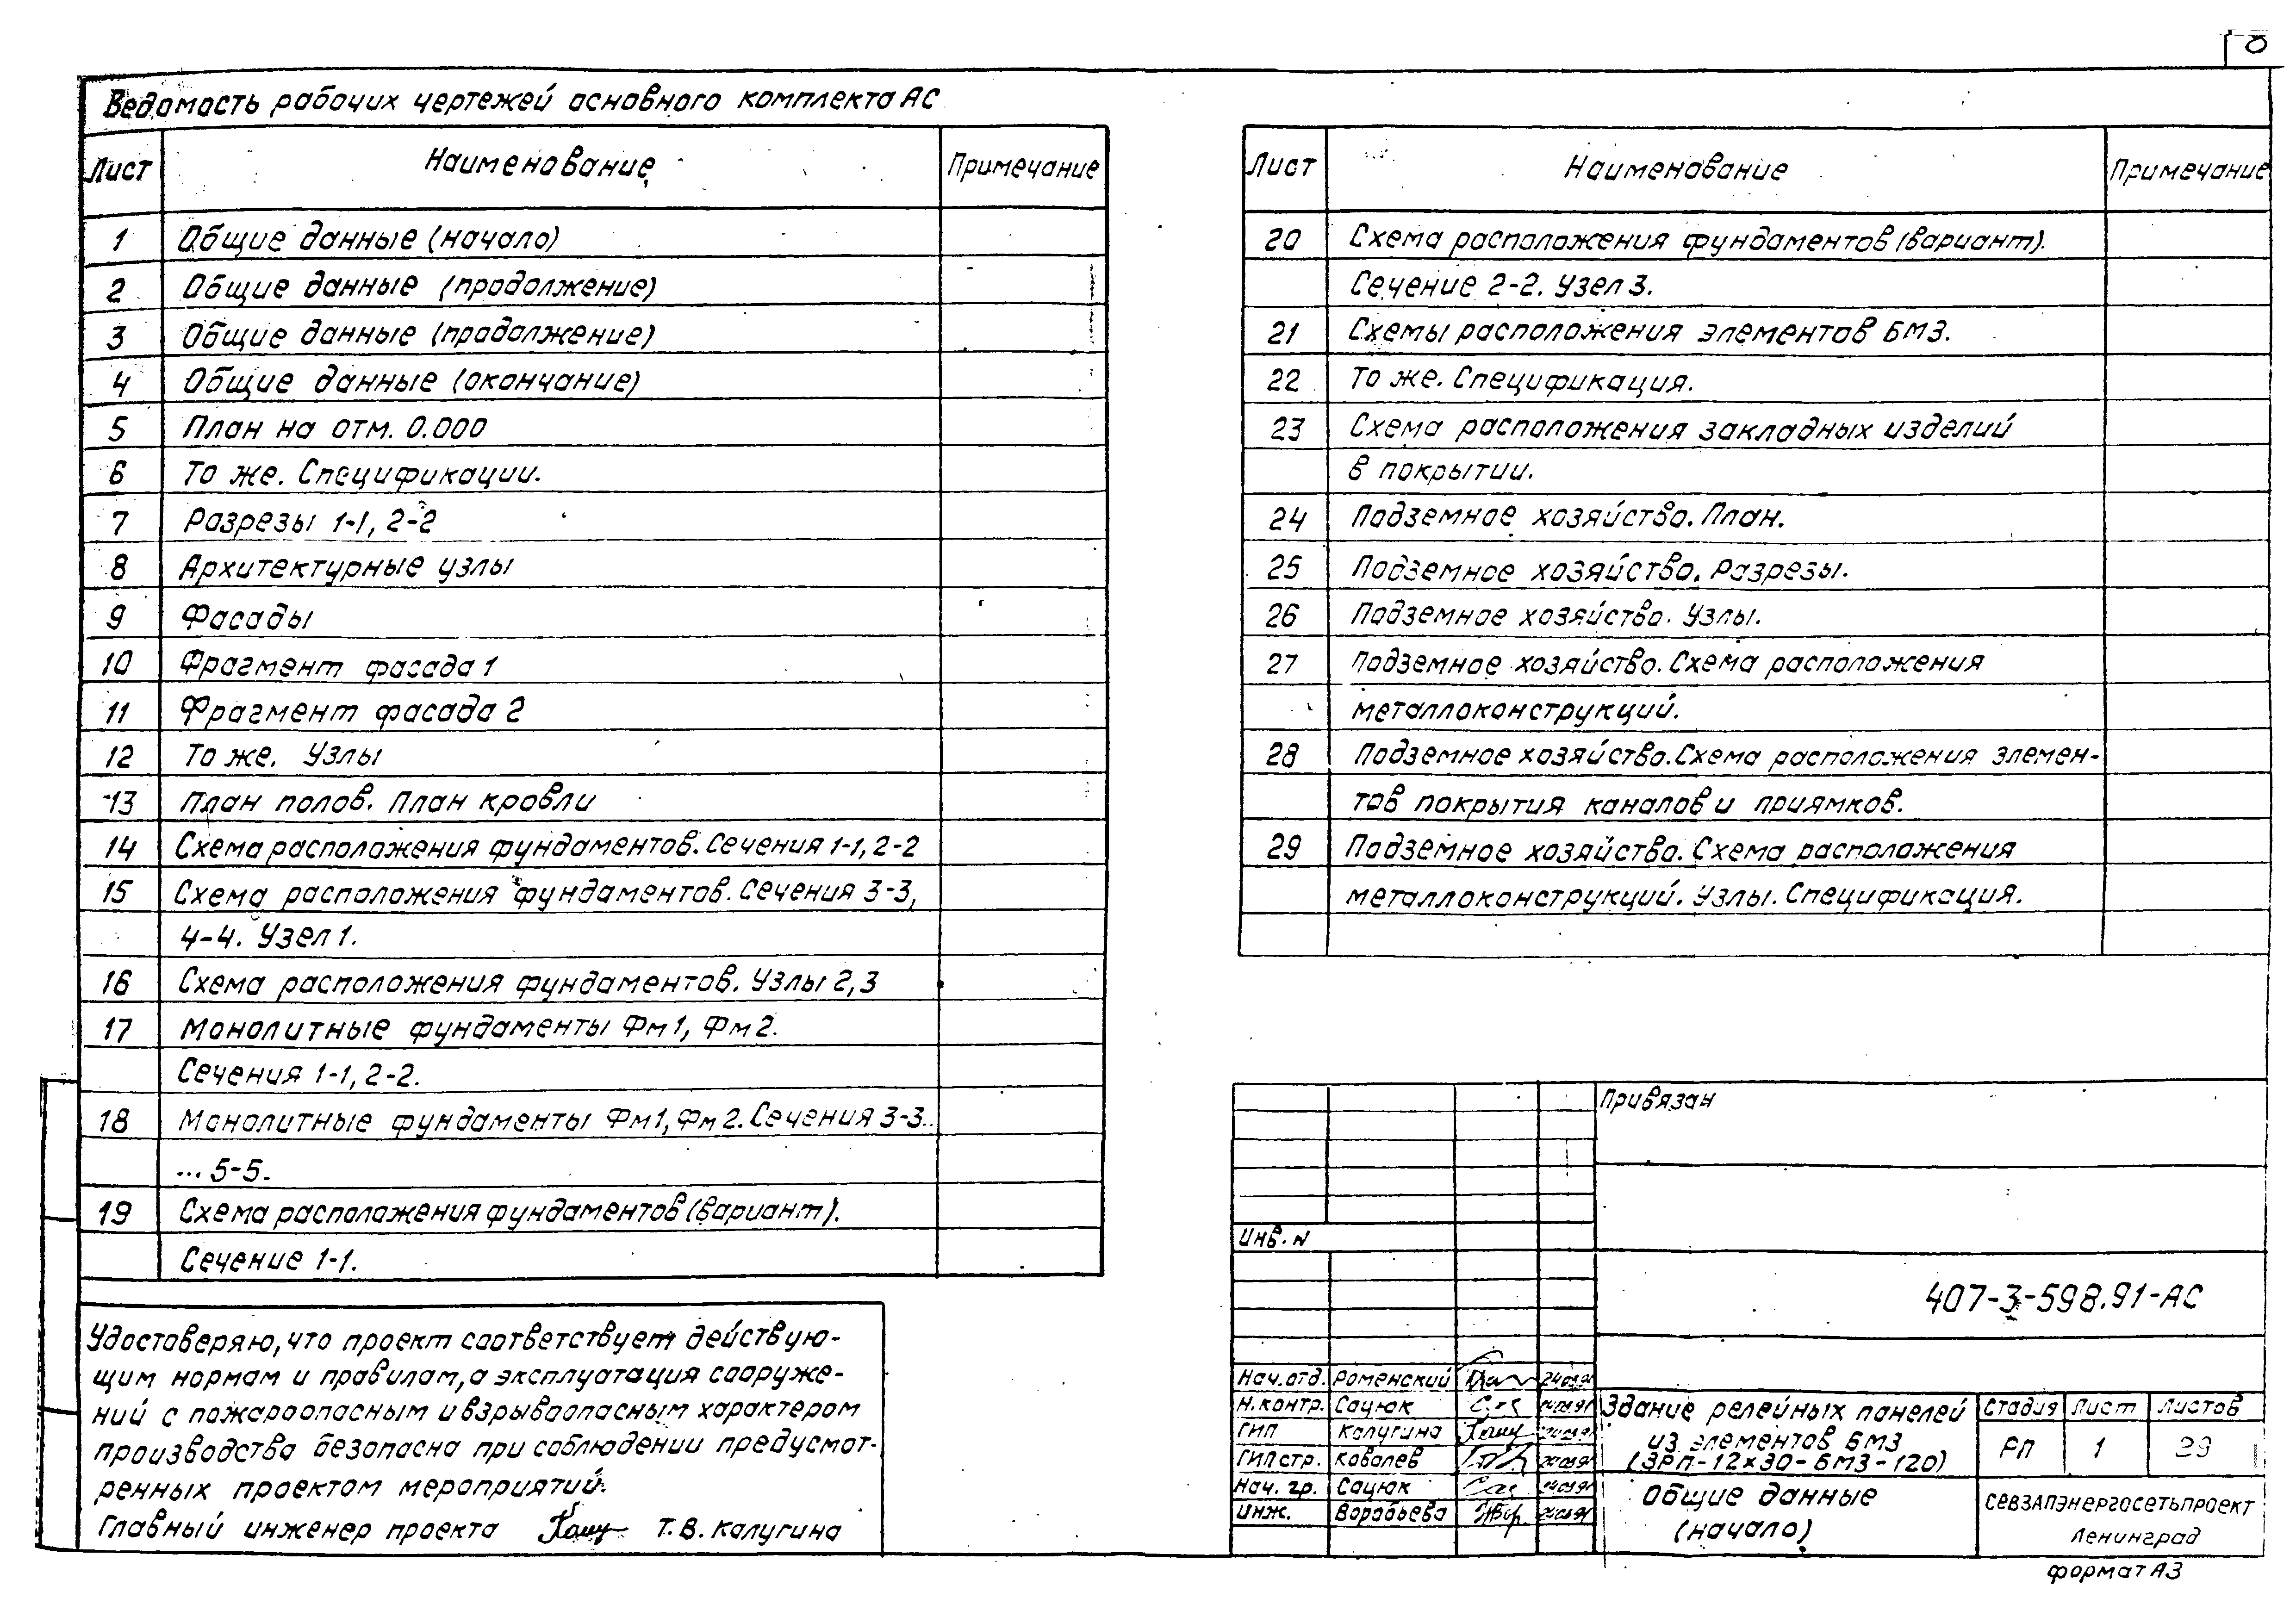 8
Ведомость рабочих чертежей основного комплекта АС
Лист Наименование Примечание
1 Общие данные (начало)
2 Общие данные (продолжение)
3 Общие данные (продолжение)
4 Общие данные (окончание)
5 План на отм. 0.000
6 То же. Спецификации.
7 Разрезы 1-1, 2-2
8 Архитектурные узлы
9 Фасады
10 Фрагмент фасада 1
11 Фрагмент фасада 2
12 То же. Узлы
13 План полов. План кровли
14 Схема расположения фундаментов. Сечения 1-1, 2-2
15 Схема расположения фундаментов. Сечения 3-3,
4-4. Узел 1.
16 Схема расположения фундаментов. Узлы 2,3
17 Монолитные фундаменты Фм1, Фм2.
Сечения 1-1, 2-2.
18 Монолитные фундаменты Фм1, Фм2. Сечения 3-3..
... 5-5.
19 Схема расположения фундаментов (вариант).
Сечение 1-1.
Лист Наименование Примечание
20 Схема расположения фундаментов (вариант).
Сечение 2-2. Узел 3.
21 Схемы расположения элементов БМЗ.
22 То же. Спецификация.
23 Схема расположения закладных изделий
в покрытии.
24 Подземное хозяйство. План.
25 Подземное хозяйство. Разрезы.
26 Подземное хозяйство. Узлы.
27 Подземное хозяйство. Схема расположения
металлоконструкций.
28 Подземное хозяйство. Схема расположения элемен-
тов покрытия каналов и приямков.
29 Подземное хозяйство. Схема расположения
металлоконструкций. Узлы. Спецификация.
Удостоверяю, что проект соответствует действую-
щим нормам и правилам, а эксплуатация сооруже-
ний с пожароопасным и взрывоопасным характером
производства безопасна при соблюдении предусмот-
ренных проектом мероприятий.
Главный инженер проекта Т. В. Калугина
Привязан
Инв. N
407-3-598.91-АС
Нач. отд. Роменский
Н. контр. Сацюк
ГИП Калугина
ГИП стр. Ковалев
Нач. гр. Сацюк
Инж. Воробьева
Здание релейных панелей
из элементов БМЗ
(ЗРП-12×30-БМЗ-120)
Стадия Лист Листов
РП 1 29
Общие данные
(начало)
Севзапэнергосетьпроект
Ленинград
формат А3